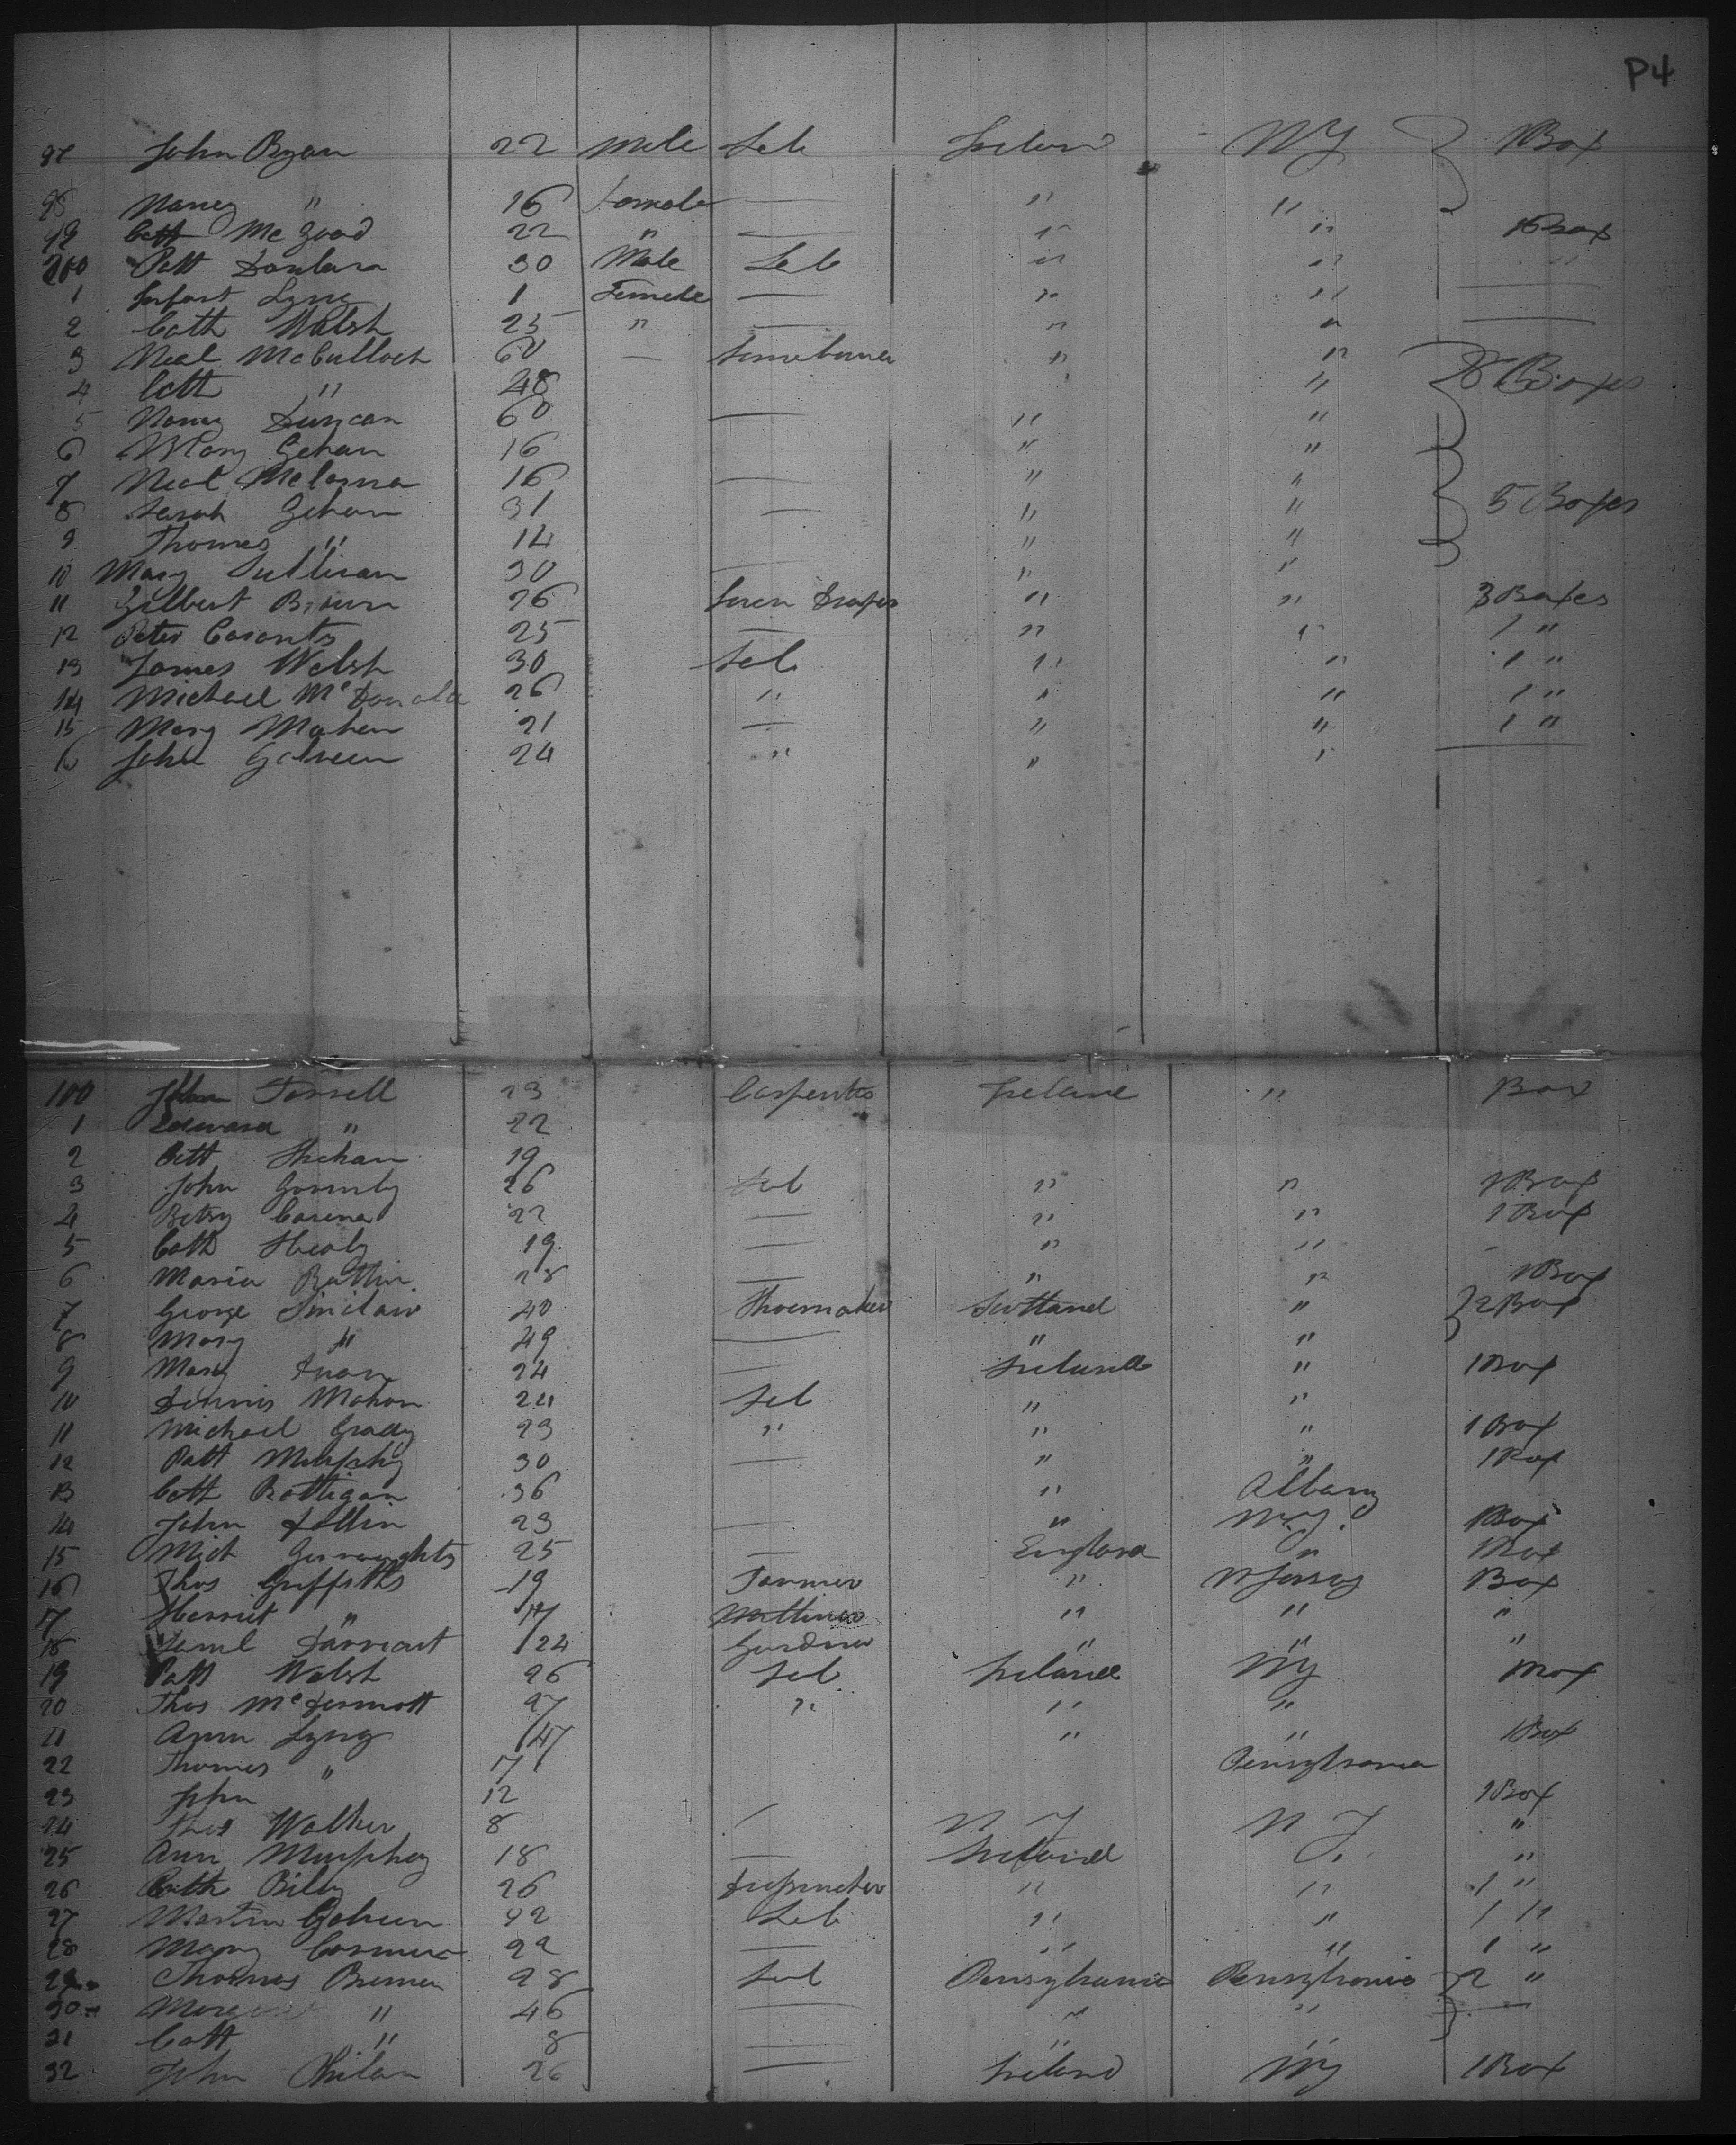 P4
97 John Ryan 22 Male Lab Ireland NY 1 Box
98 Nancy " 16 Female — " "
99 Cath McGood 22 " — " " 1 Box
200 Patt Danlara 30 Male Lab " " "
1 Infant Lyng 1 Female — " " —
2 Cath Walsh 25 " — " " —
3 Neal McCulloch 60 — " " 8 Boxes
4 Cath " 48 "
5 Nancy Duncan 60 — " "
6 Mary Gehan 16 " "
7 Neal 16 — " "
8 Sarah Gehan 31 — " " 5 Boxes
9 Thomas " 14 " "
10 Mary Sullivan 30 — " "
11 Gilbert Brown 26 Linen Draper " " 3 Boxes
12 Peter 25 — " " 1 "
13 James Welsh 30 Lab " " 1 "
14 Michael McDonald 26 " " " 1 "
15 Mary Mahan 21 — " " 1 "
16 John Galveen 24 " " " —
100 John Farrell 23 Carpenter Ireland " Box
1 Edward " 22
2 Bitt Shehan 19
3 John Gormly 26 Lab " " 1 Box
4 Betsy 22 — " " 1 Box
5 Cath Healy 19 — " " -
6 Maria 28 — " " 1 Box
7 George Sinclair 40 Shoemaker Scotland " 2 Box
8 Mary " 49 — " "
9 Mary 24 — Ireland " 1 Box
10 Dennis Mahon 24 Lab " "
11 Michael Grady 23 " " " 1 Box
12 Patt Murphy 30 — " " 1 Box
13 Cath Rattigan 36 " Albany
14 John Dollin 23 — " NY. Box
15 Mich 25 — England " Box
16 Thos Griffiths 19 Farmer " N Jersey Box
17 Harriet " 17 Milliner " " "
18 Saml 24 Gardner " " "
19 Patt Walsh 26 Lab Ireland NY 1 Box
20 Thos McDermott 27 " " "
21 Ann Lyng 47 " " 1 Box
22 Thomas " 17 Pensylvania
23 John 12 1 Box
24 Thos Walker 8 — N Y N Y "
25 Ann Murphey 18 — Ireland "
26 Cath Riley 26 Dressmaker " " 1 "
27 Martin Galveen 42 Lab " " 1 "
28 Mary 22 — " " 1 "
29 Thomas 28 Lab Pensylvania Pensylvania 2 "
30 Margaret " 46 — " " —
31 Cath " 8 — " "
32 John Philan 26 — Ireland NY 1 Box